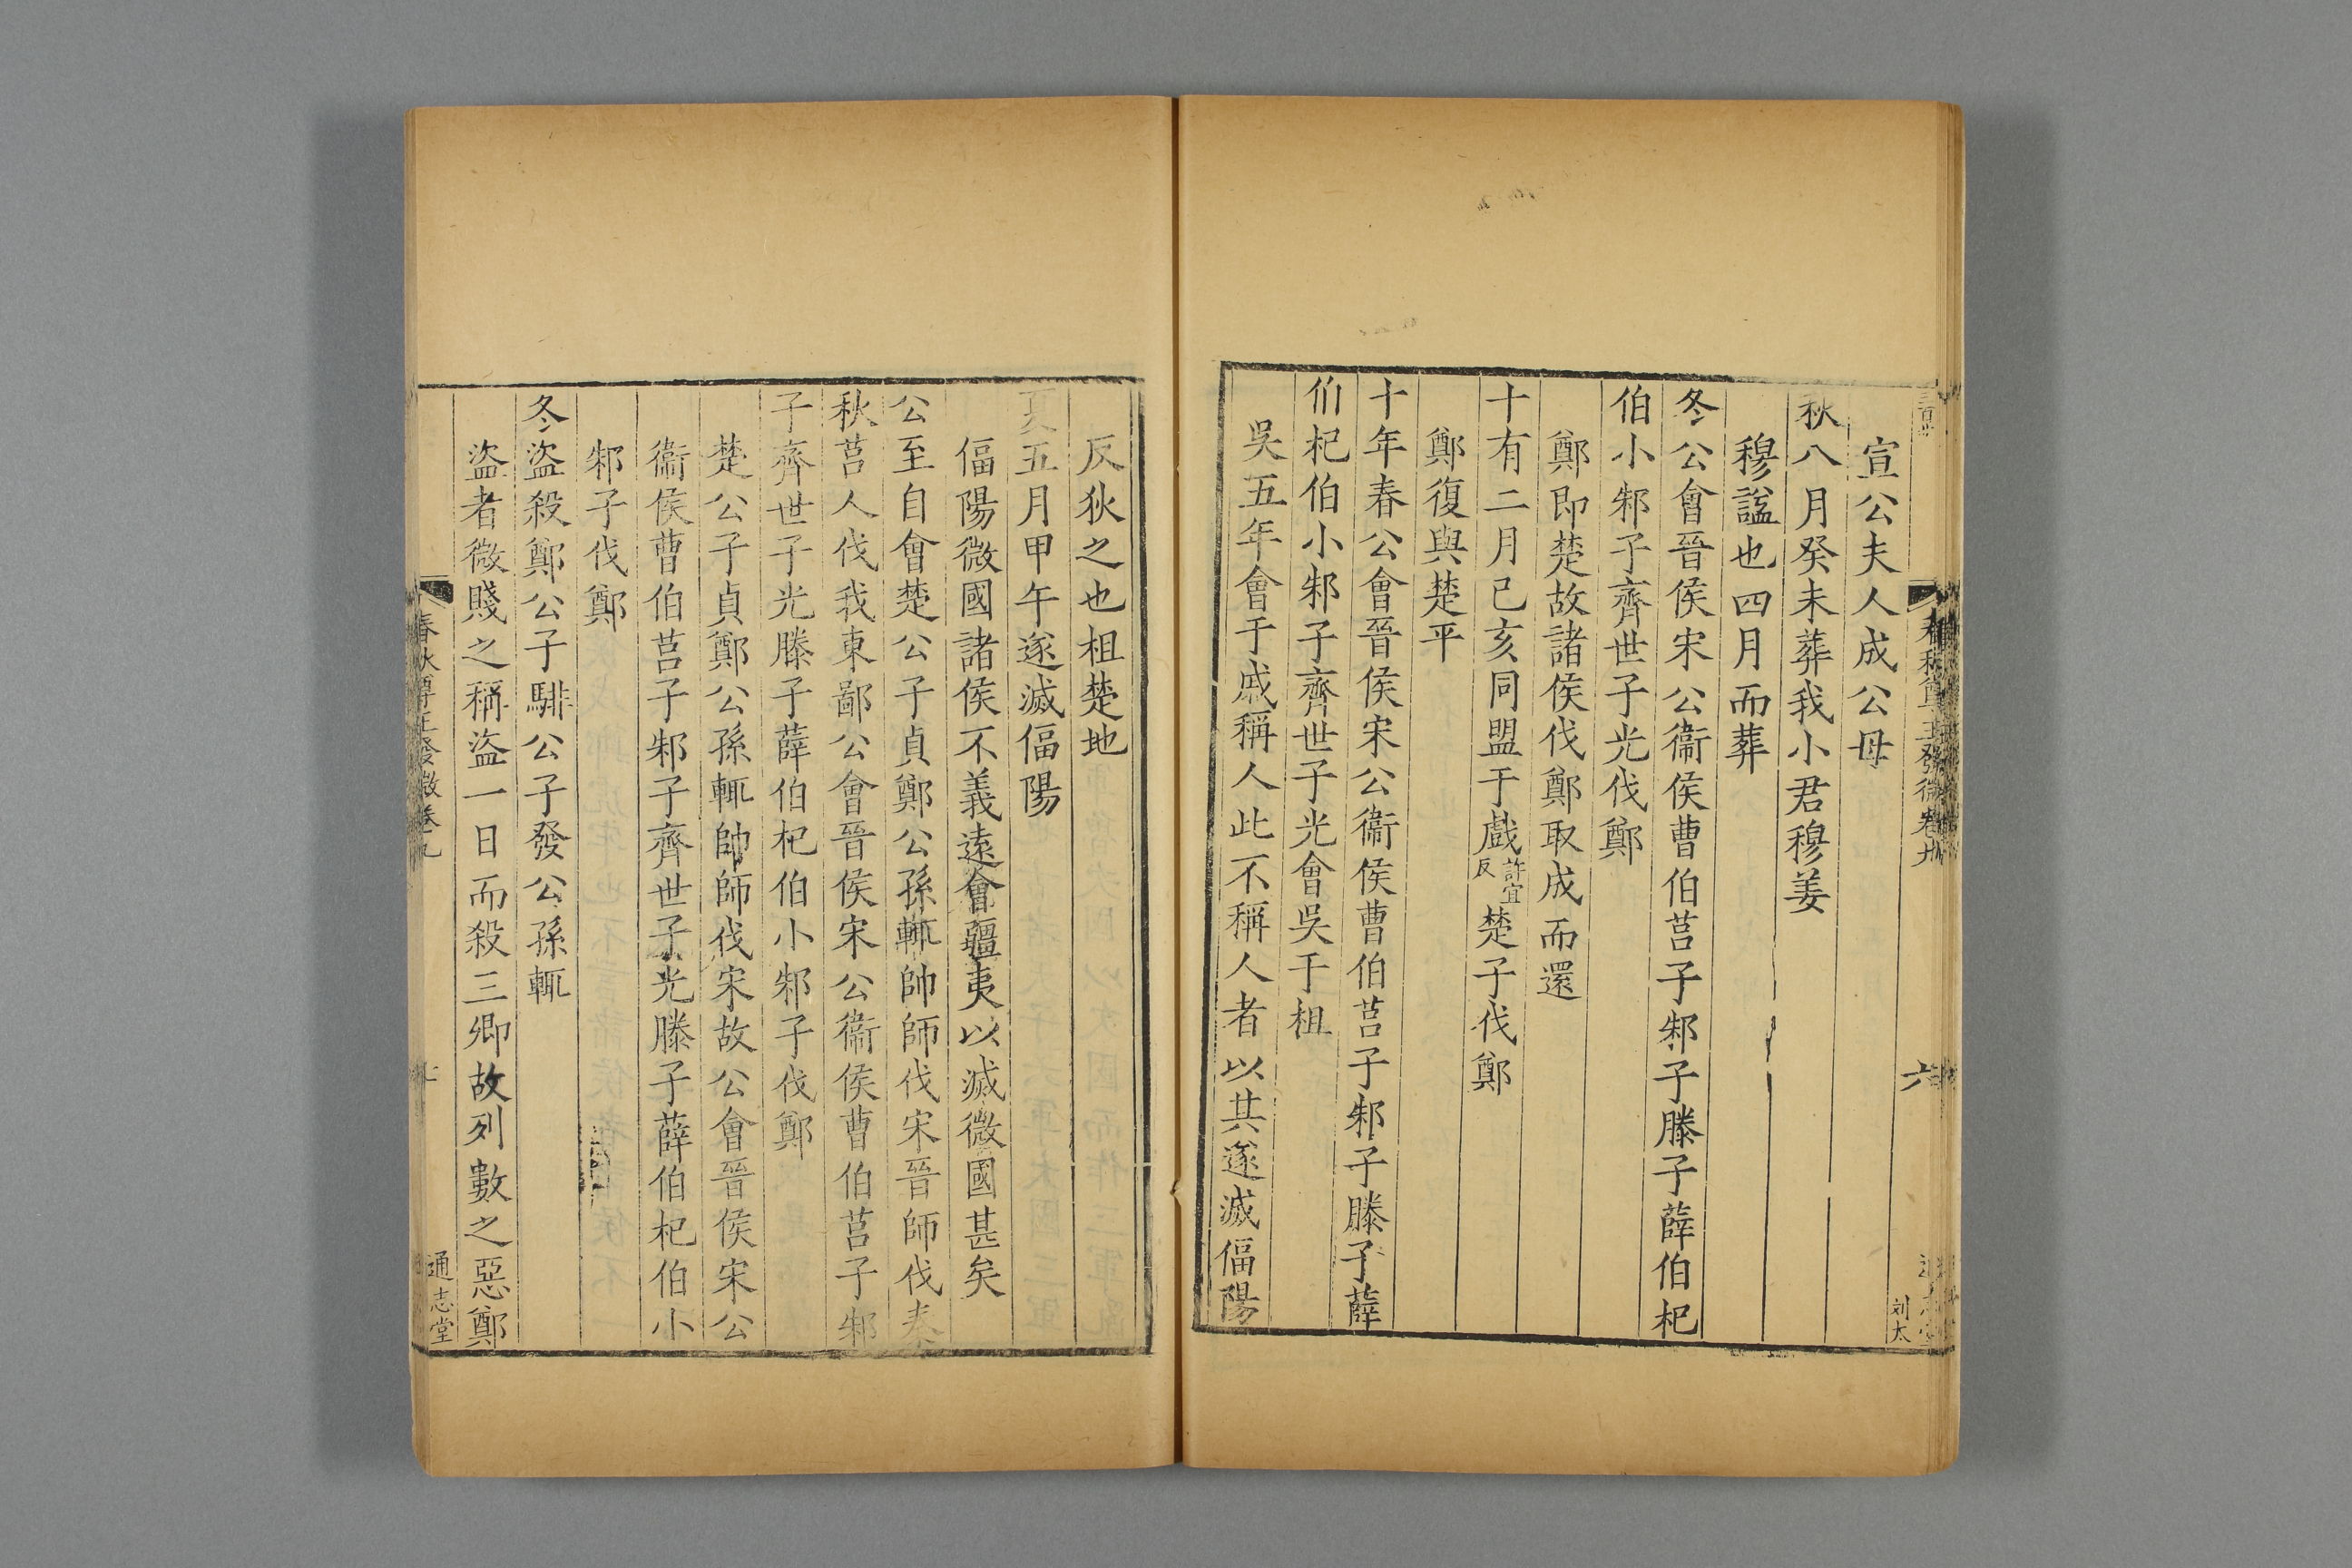 宣公夫人成公母
秋八月癸未葬我小君穆姜
穆諡也四月而葬
冬公會晉侯宋公衞侯曹伯莒子邾子滕子薛伯杞
伯小邾子齊世子光伐鄭
鄭即楚故諸侯伐鄭取成而還
十有二月己亥同盟于戲許宜反楚子伐鄭
鄭復與楚平
十年春公會晉侯宋公衞侯曹伯莒子邾子滕子薛
伯杞伯小邾子齊世子光會吳于柤
吳五年會于戚稱人此不稱人者以其遂滅偪陽
反狄之也柤楚地
夏五月甲午遂滅偪陽
偪陽微國諸侯不義遠會疆夷以滅微國甚矣
公至自會楚公子貞鄭公孫輒帥師伐宋晉師伐秦
秋莒人伐我東鄙公會晉侯宋公衞侯曹伯莒子邾
子齊世子光滕子薛伯杞伯小邾子伐鄭
楚公子貞鄭公孫輒帥師伐宋故公會晉侯宋公
衞侯曹伯莒子邾子齊世子光滕子薛伯杞伯小
邾子伐鄭
冬盜殺鄭公子騑公子發公孫輒
盜者微賤之稱盜一日而殺三卿故列數之惡鄭
春秋尊王發微卷九
通志堂
春秋尊王發微卷九
六
刘太